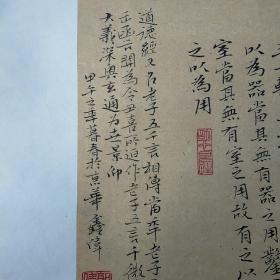 以為器當其無有器之用鑿
室當其無有室之用故有之以
之以為用
道德經又名老子五千言相傳當年老子
出函谷關為令尹喜所迫作老子五言千微
大義深奥玄通為世景仰
甲午之年暮春於京華